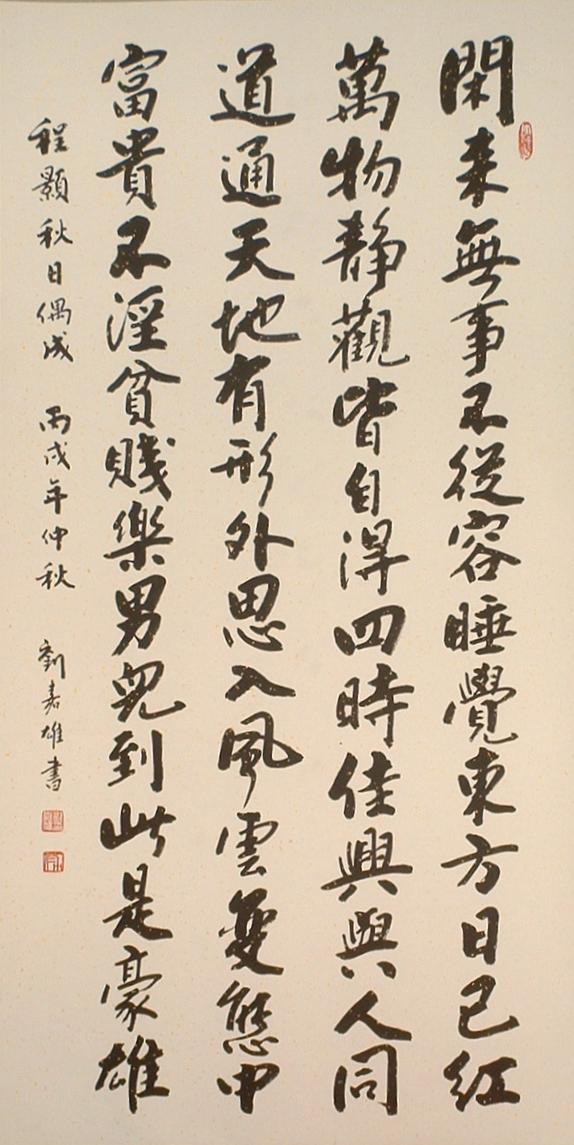 閑来無事不從容睡覺東方日已紅
萬物靜觀皆自得四時佳興與人同
道通天地有形外思入風雲變態中
富貴不淫貧賤樂男兒到此是豪雄
程顥秋日偶成 丙戌年仲秋 劉嘉雄書